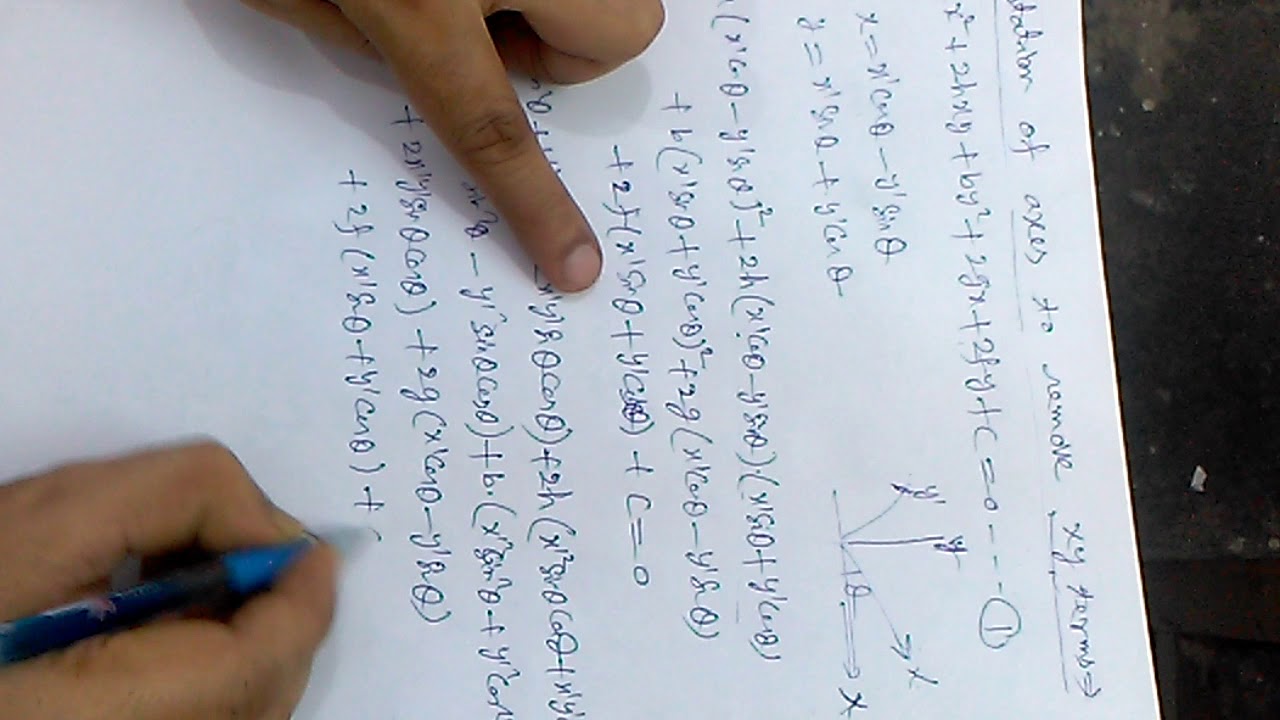 of axes to remove xy terms ⇒
x² + 2hxy + by² + 2gx + 2fy + c = 0 ---- ①
x = x'cosθ - y'sinθ
y = x'sinθ + y'cosθ
y'
y
θ
x'
x
(x'cosθ - y'sinθ)² + 2h(x'cosθ - y'sinθ)·(x'sinθ + y'cosθ)
+ b(x'sinθ + y'cosθ)² + 2g(x'cosθ - y'sinθ)
+ 2f(x'sinθ + y'cosθ) + c = 0
x'y'sinθcosθ) + 2h(x'²sinθcosθ + x'y'
- y'²sinθcosθ) + b·(x'²sin²θ + y'²cos
+ 2x'y'sinθcosθ) + 2g(x'cosθ - y'sinθ)
+ 2f(x'sinθ + y'cosθ) +